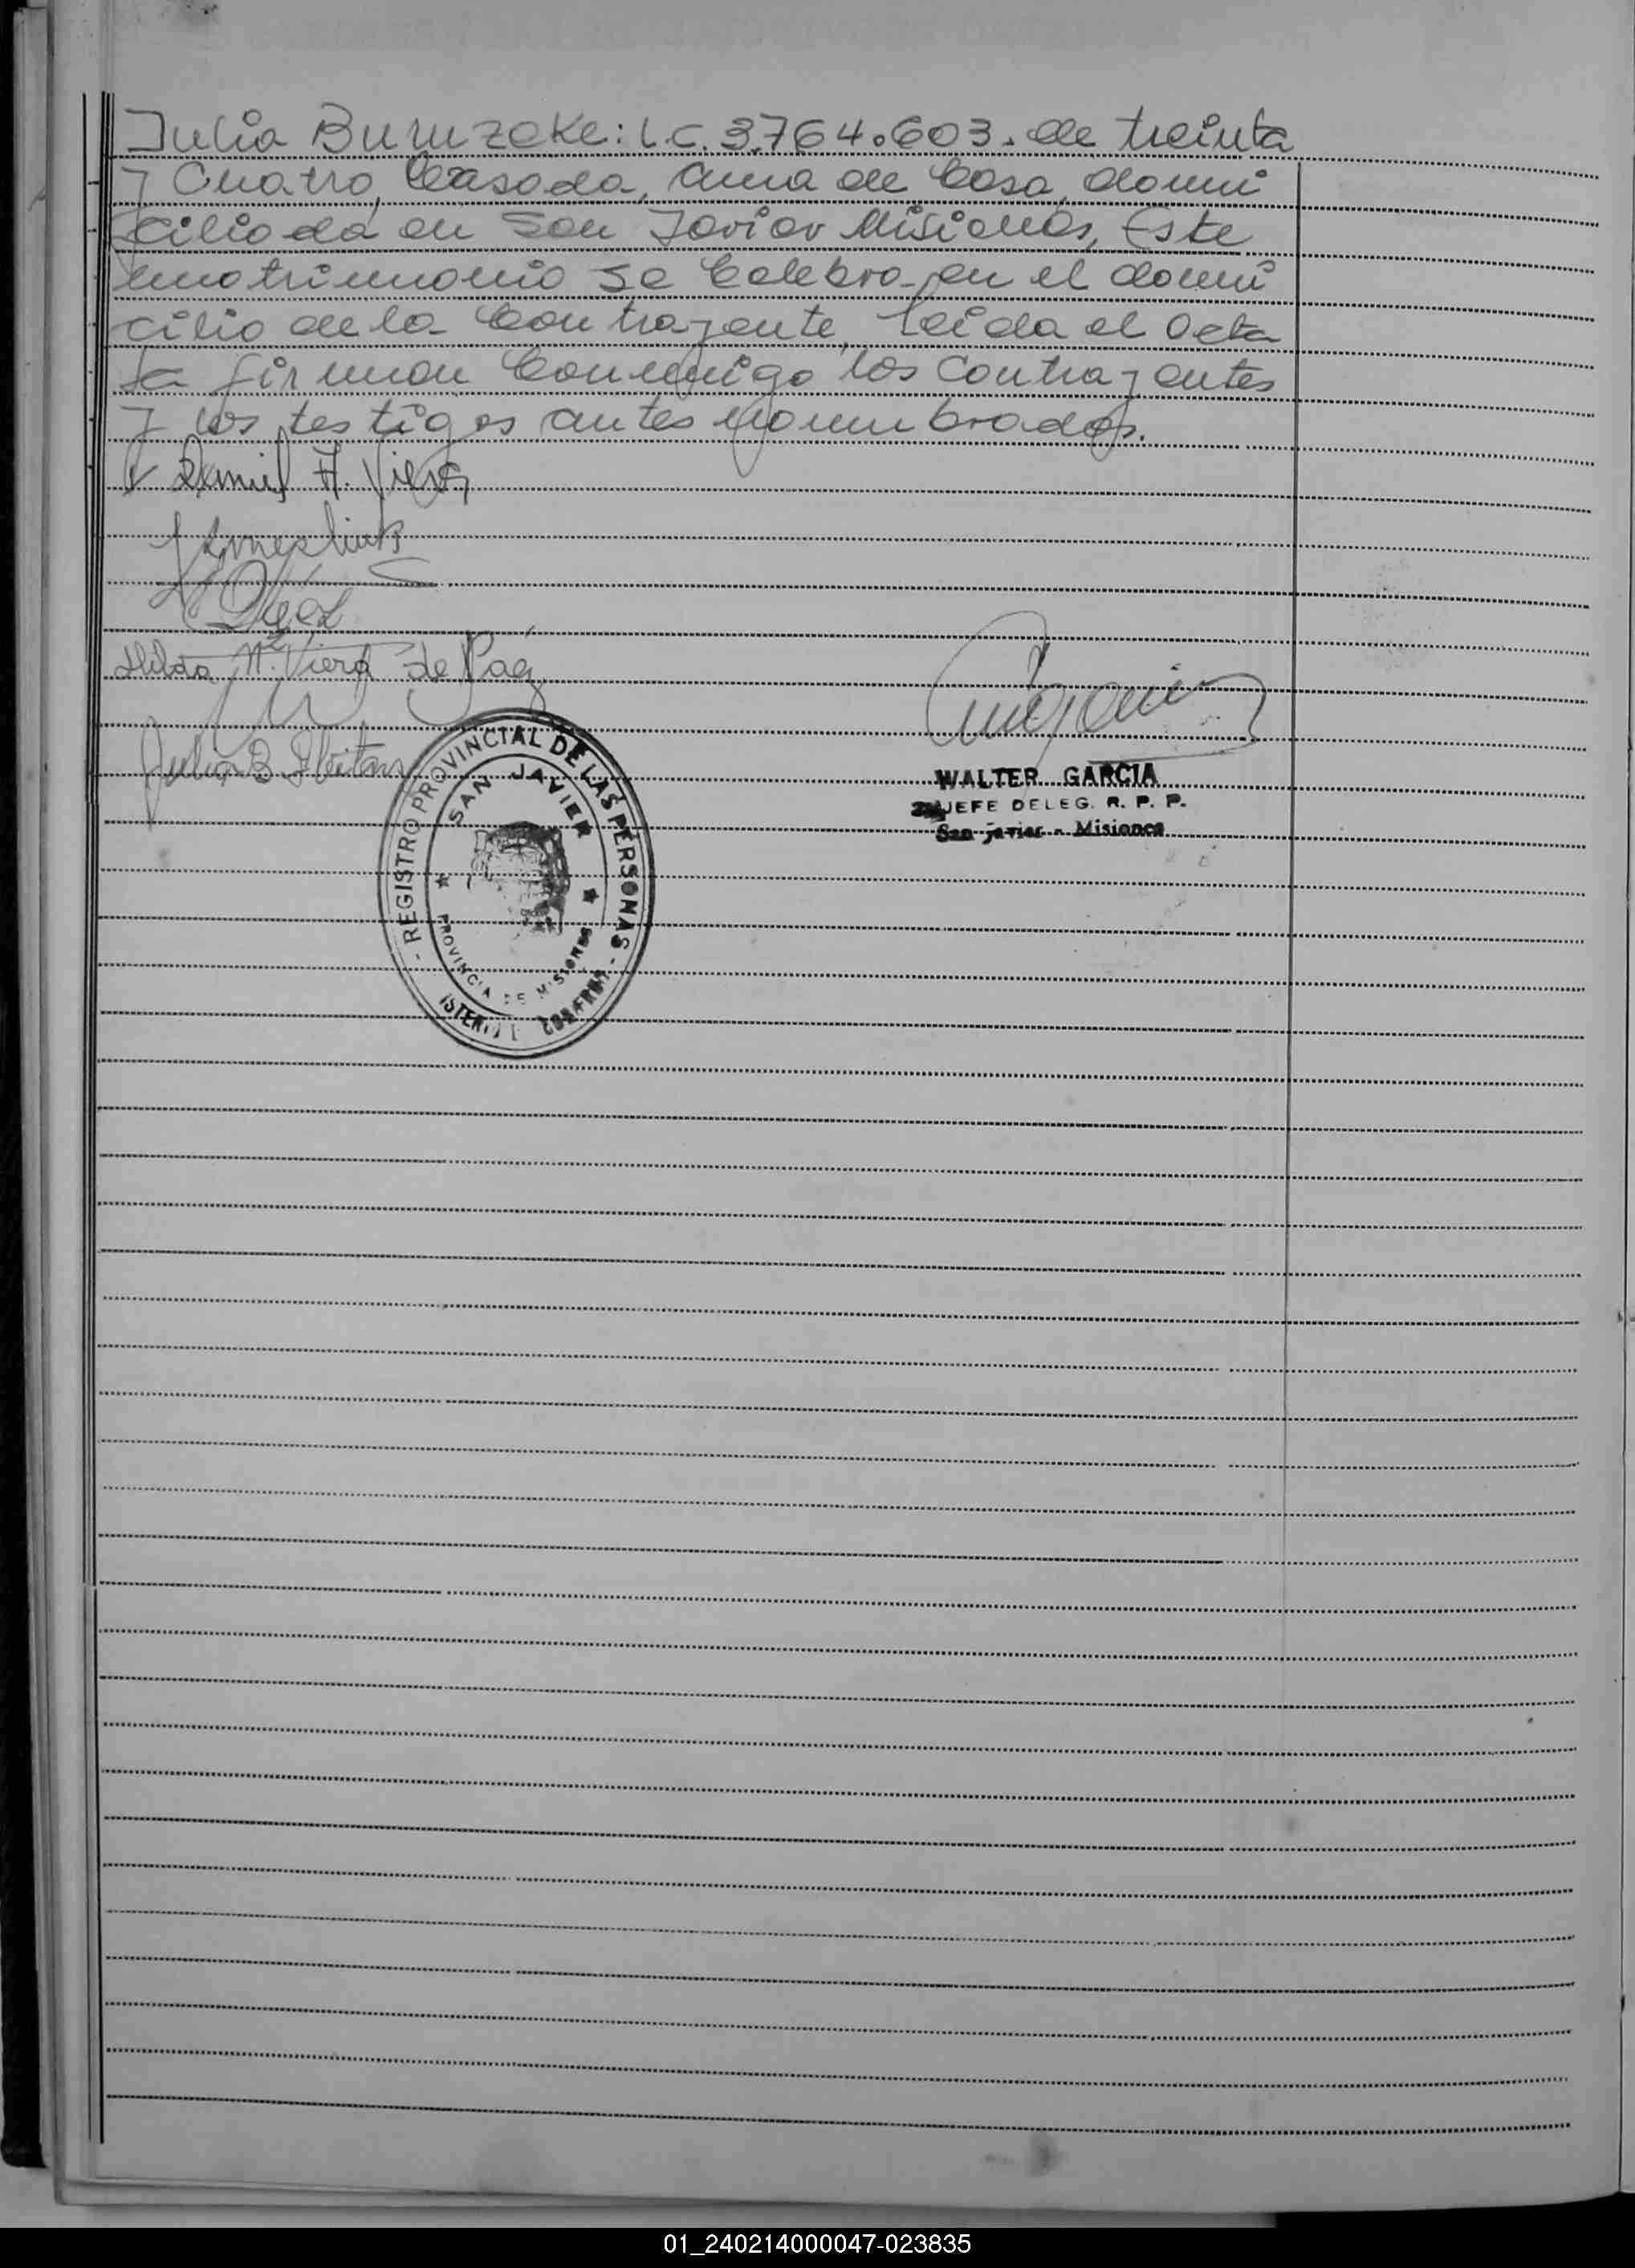 Julia Buruzeke: L.C. 3.764.603. de treinta
y Cuatro, Casada, ama de Casa, domi
ciliada en San Javier Misiones, Este
matrimonio se Celebra en el domi
cilio de la Contrayente, leida el Acta
la firman Conmigo los Contrayentes
y los testigos antes nombrados.
Daniel A. Viera
Hilda N. Viera de Paéz
Julia B. Fleitas
WALTER GARCIA
JEFE DELEG. R. P. P.
San javier - Misiones
- REGISTRO PROVINCIAL DE LAS PERSONAS -
SAN JAVIER
PROVINCIA DE MISIONES
01_240214000047-023835